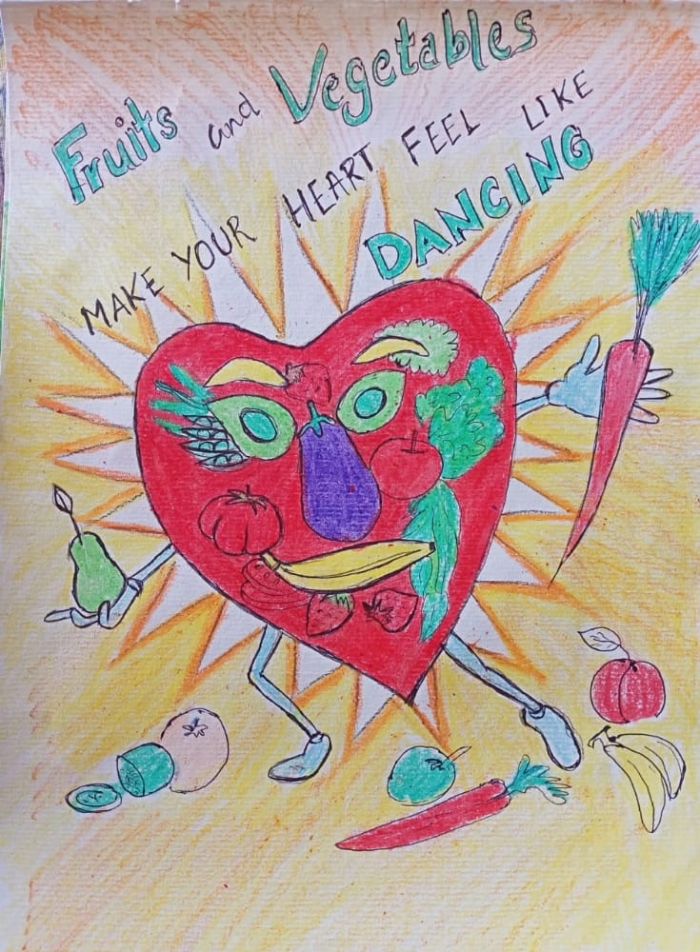 Fruits and Vegetables
MAKE YOUR HEART FEEL LIKE
DANCING